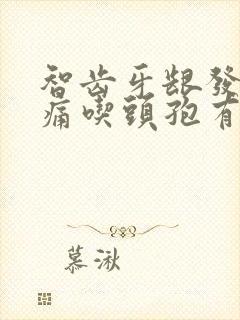 智齿牙龈發
痛喫頭孢有
慕湫